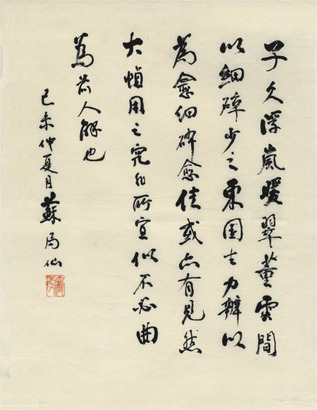 子久浮嵐煖翠董雲間
以細碎少之東園去力辯以
為愈細碎愈佳或亦有見然
大幀用之究非所宜似不必曲
為前人解也
己未仲夏月蘇局仙